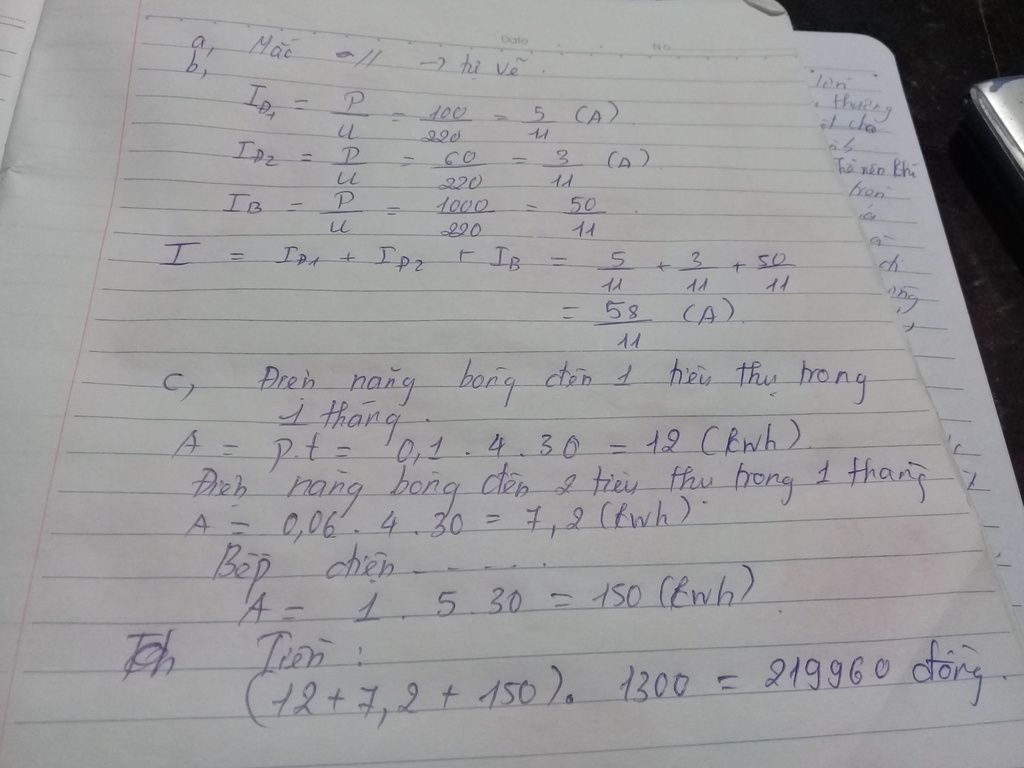 Date No
a, Mắc = // → tự vẽ.
b,
I_{Đ1} = P/U = 100/220 = 5/11 (A)
I_{Đ2} = P/U = 60/220 = 3/11 (A)
I_B = P/U = 1000/220 = 50/11
I = I_{Đ1} + I_{Đ2} + I_B = 5/11 + 3/11 + 50/11
= 58/11 (A)
c, Điện năng bóng đèn 1 tiêu thụ trong
1 tháng.
A = p.t = 0,1 . 4 . 30 = 12 (kwh)
Điện năng bóng đèn 2 tiêu thụ trong 1 tháng
A = 0,06 . 4 . 30 = 7,2 (kwh)
Bếp điện - - - - .
A = 1 . 5 . 30 = 150 (kwh)
Tiền :
(12 + 7,2 + 150) . 1300 = 219960 đồng.
thường
thế nào khi